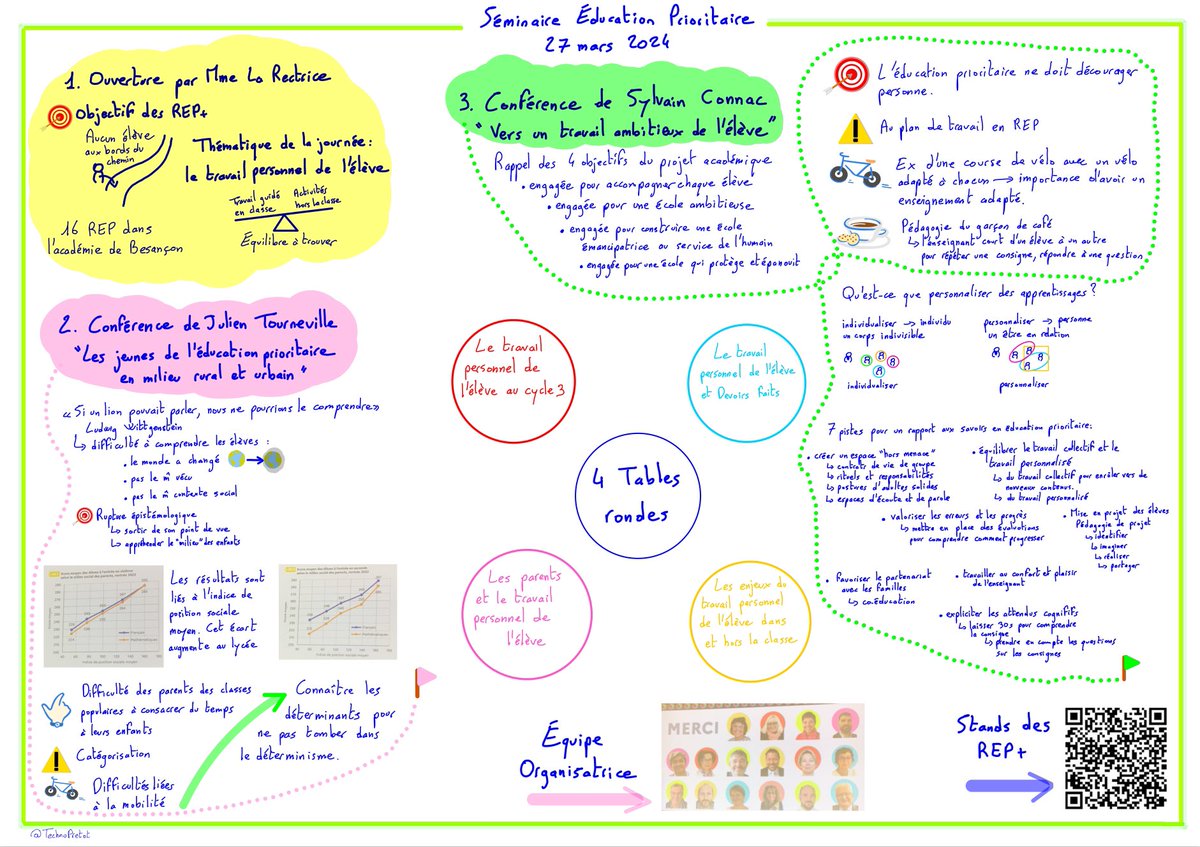 Séminaire Éducation Prioritaire
27 mars 2024
1. Ouverture par Mme La Rectrice
Objectif des REP+
Aucun élève
aux bords du
chemin
Thématique de la journée :
le travail personnel de l'élève
Travail guidé
en classe
Activités
hors la classe
Équilibre à trouver
16 REP dans
l'académie de Besançon
2. Conférence de Julien Tourneville
"Les jeunes de l'éducation prioritaire
en milieu rural et urbain"
« Si un lion pouvait parler, nous ne pourrions le comprendre »
Ludwig Wittgenstein
↳ difficulté à comprendre les élèves :
• le monde a changé
• pas le m̂ vécu
• pas le m̂ contexte social
Rupture épistémologique
↳ sortir de son point de vue
↳ appréhender le "milieu" des enfants
Les résultats sont
liés à l'indice de
position sociale
moyen. Cet écart
augmente au lycée
Français
Mathématiques
Français
Mathématiques
Difficulté des parents des classes
populaires à consacrer du temps
à leurs enfants
Catégorisation
Difficultés liées
à la mobilité
Connaître les
déterminants pour
ne pas tomber dans
le déterminisme.
3. Conférence de Sylvain Connac
"Vers un travail ambitieux de l'élève"
Rappel des 4 objectifs du projet académique
• engagée pour accompagner chaque élève
• engagée pour une école ambitieuse
• engagée pour construire une école
émancipatrice au service de l'humain
• engagée pour une école qui protège et épanouit
L'éducation prioritaire ne doit décourager
personne.
Au plan de travail en REP
Ex d'une course de vélo avec un vélo
adapté à chacun → importance d'avoir un
enseignement adapté.
Pédagogie du garçon de café
↳ l'enseignant court d'un élève à un autre
pour répéter une consigne, répondre à une question
Qu'est-ce que personnaliser des apprentissages ?
individualiser → individu
un corps indivisible
individualiser
personnaliser → personne
un être en relation
personnaliser
7 pistes pour un rapport aux savoirs en éducation prioritaire:
• créer un espace "hors menace"
↳ contrats de vie de groupe
↳ rituels et responsabilités
↳ postures d'adultes solides
↳ espaces d'écoute et de parole
• équilibrer le travail collectif et le
travail personnalisé
↳ du travail collectif pour enrôler vers de
nouveaux contenus.
↳ du travail personnalisé
• Valoriser les erreurs et les progrès
↳ mettre en place des évaluations
pour comprendre comment progresser
• Mise en projet des élèves
Pédagogie de projet
↳ identifier
↳ imaginer
↳ réaliser
↳ partager
• Favoriser le partenariat
avec les familles
↳ coéducation
• travailler au confort et plaisir
de l'enseignant
• expliciter les attendus cognitifs
↳ laisser 30s pour comprendre
la consigne
↳ prendre en compte les questions
sur les consignes
Le travail
personnel de
l'élève au cycle 3
Le travail
personnel de l'élève
et Devoirs Faits
4 Tables
rondes
Les parents
et le travail
personnel de
l'élève
Les enjeux du
travail personnel
de l'élève dans
et hors la classe
Équipe
Organisatrice
MERCI
Stands des
REP+
@TechnoPretot